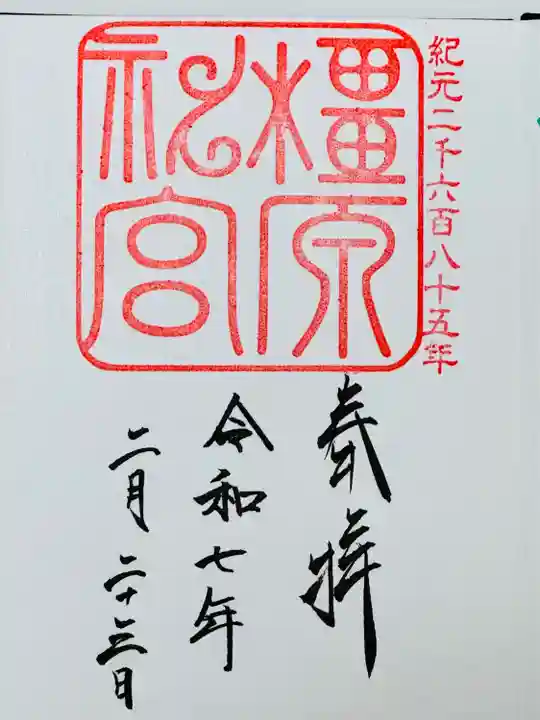 紀元二千六百八十五年
橿原
神宮
奉拝
令和七年
二月二十三日